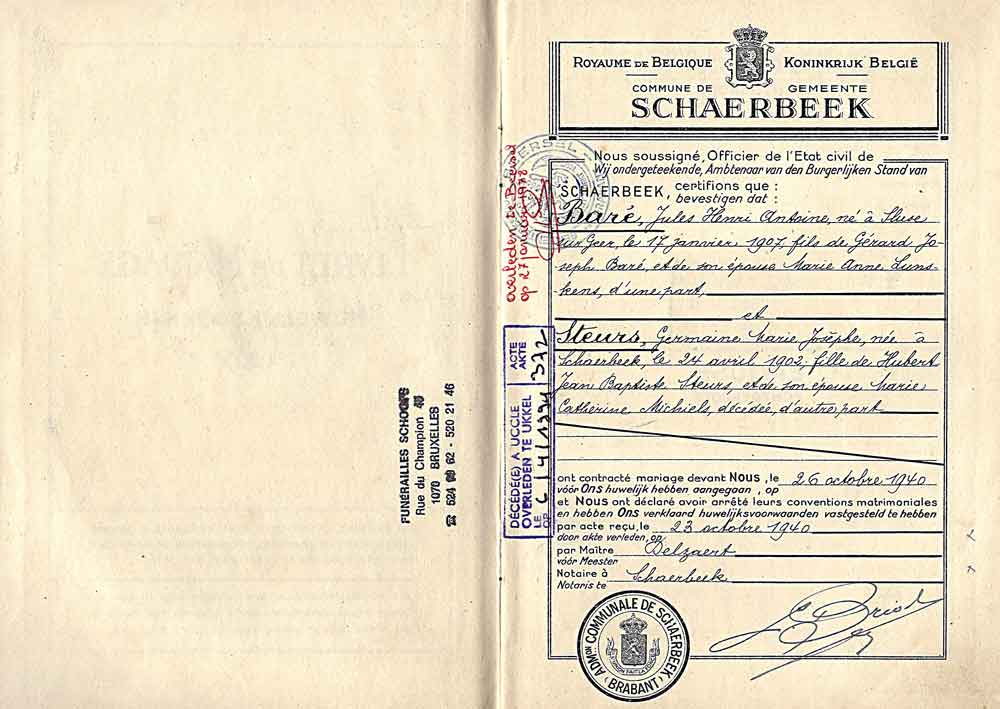 FUNÉRAILLES SCHOOFS
Rue du Champion
1070 BRUXELLES
62 - 520 21 46
ROYAUME DE BELGIQUE KONINKRIJK BELGIË
COMMUNE DE GEMEENTE
SCHAERBEEK
Nous soussigné, Officier de l'Etat civil de
Wij ondergeteekende, Ambtenaar van den Burgerlijken Stand van
SCHAERBEEK, certifions que :
bevestigen dat :
Baré, Jules Henri Antoine, né à Sluse
sur Geer, le 17 janvier 1907, fils de Gérard Jo-
seph Baré, et de son épouse Marie Anne Luns-
kens, d'une part,
et
Steurs, Germaine Marie Josèphe, née à
Schaerbeek, le 24 avril 1902, fille de Hubert
Jean Baptiste Steurs, et de son épouse Marie
Catherine Michiels, décédée, d'autre part
ont contracté mariage devant NOUS, le 26 octobre 1940
vóór Ons huwelijk hebben aangegaan, op
et Nous ont déclaré avoir arrêté leurs conventions matrimoniales
en hebben Ons verklaard huwelijksvoorwaarden vastgesteld te hebben
par acte reçu, le 23 octobre 1940
door akte verleden, op
par Maître Delzaert
vóór Meester
Notaire à Schaerbeek
Notaris te
ADMON COMMUNALE DE SCHAERBEEK
(BRABANT)
overleden te Beersel
op 27 januari 1978
DÉCÉDÉ(E) A UCCLE
OVERLEDEN TE UKKEL
LE
OP 6/4/1994
ACTE
AKTE 372